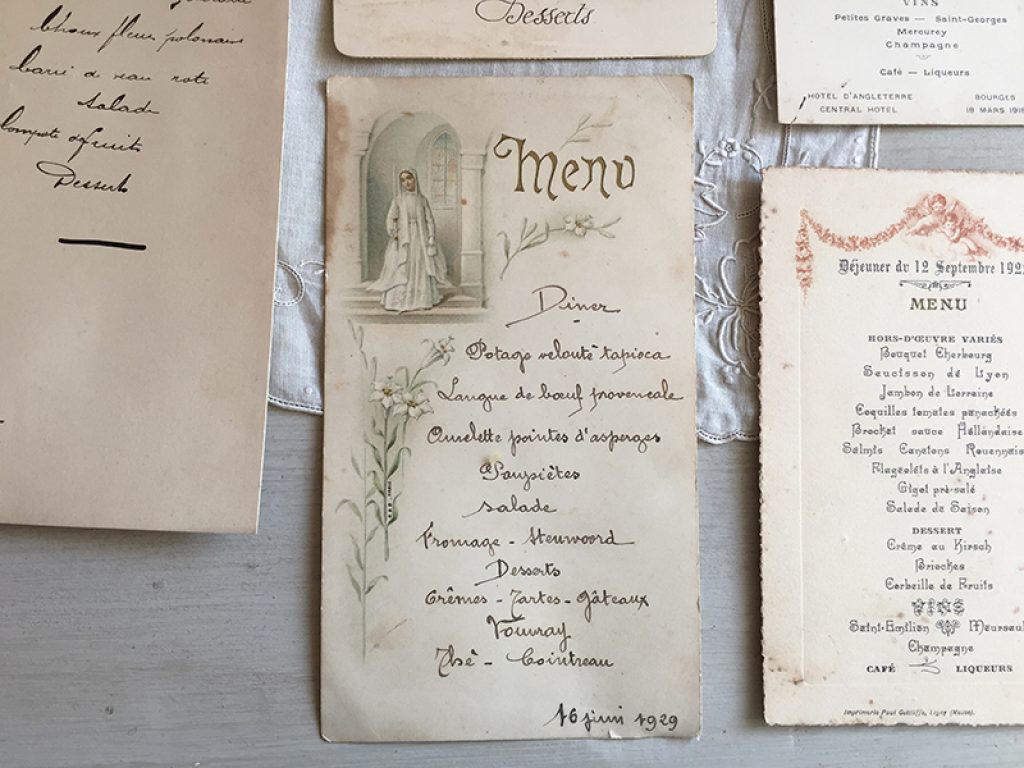 Choux fleur polonaise
Carré de veau roti
Salade
Compote de fruits
Desserts
Desserts
VINS
Petites Graves — Saint-Georges
Mercurey
Champagne
Café — Liqueurs
HOTEL D'ANGLETERRE
CENTRAL HOTEL
BOURGES
18 MARS 191
Menu
Dîner
Potage velouté tapioca
Langue de bœuf provencale
Omelette pointes d'asperges
Paupiètes
salade
Fromage - Steuwoord
Desserts
Crêmes - Tartes - Gâteaux
Vouvray
Thé - Cointreau
16 juin 1929
Déjeuner du 12 Septembre 192
MENU
HORS-D'ŒUVRE VARIÉS
Bouquet Cherbourg
Saucisson de Lyon
Jambon de Lorraine
Coquilles tomates panachées
Brochet sauce Hollandaise
Salmis Canetons Rouennais
Flageolets à l'Anglaise
Gigot pré-salé
Salade de Saison
DESSERT
Crème au Kirsch
Brioches
Corbeille de Fruits
VINS
Saint-Emilion Meursaul
Champagne
CAFÉ LIQUEURS
Imprimerie Paul Ligny (Meuse).